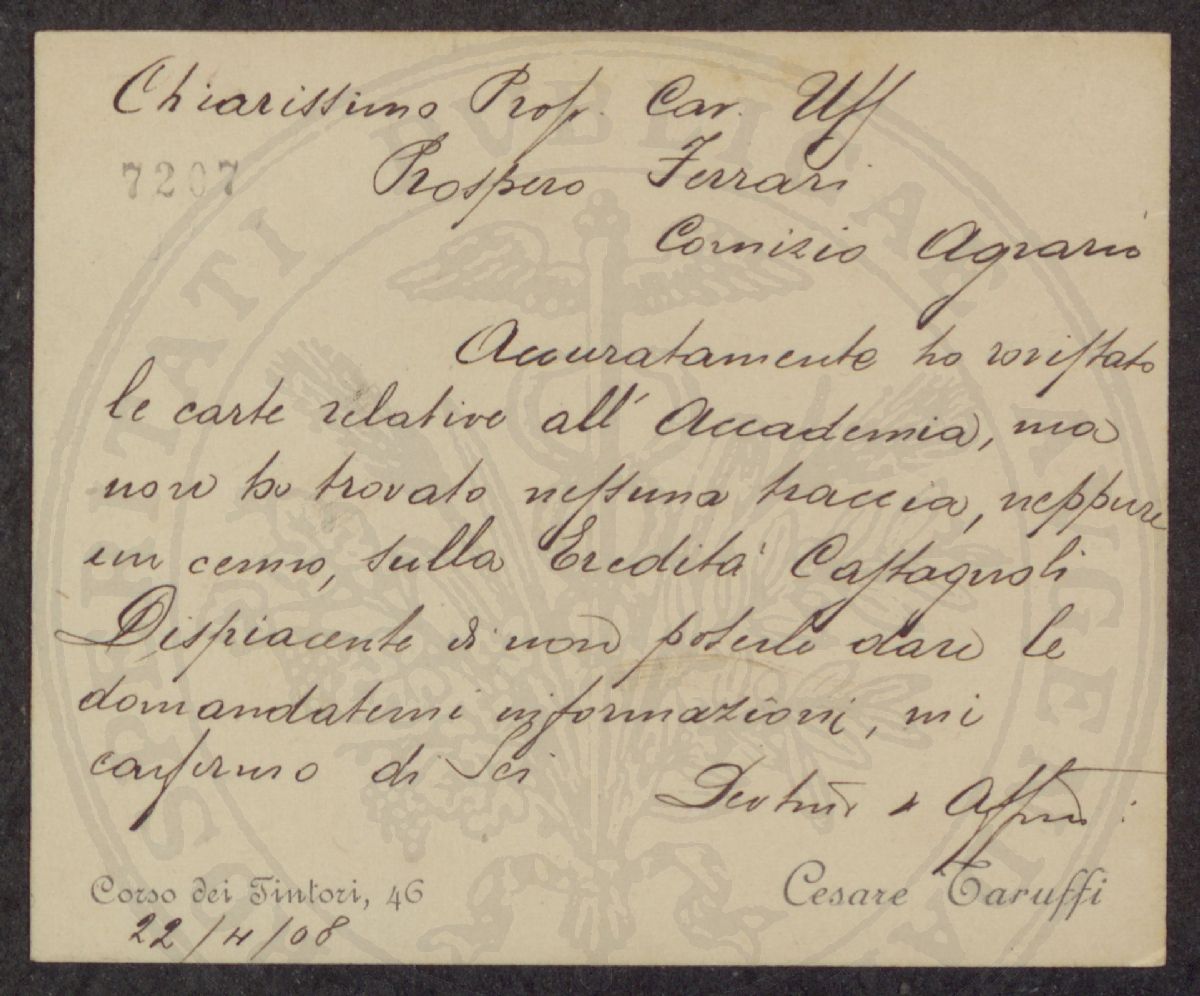 Chiarissimo Prof. Cav. Uff
7207
Prospero Ferrari
Comizio Agrario
Accuratamente ho rovistato
le carte relative all' Accademia, ma
non ho trovato nessuna traccia, neppure
un cenno, sulla Eredità Castagnoli
Dispiacente di non poterle dare le
domandatemi informazioni, mi
confermo di Lei
Devmo e Affmo:
Corso dei Tintori, 46
Cesare Taruffi
22/4/08